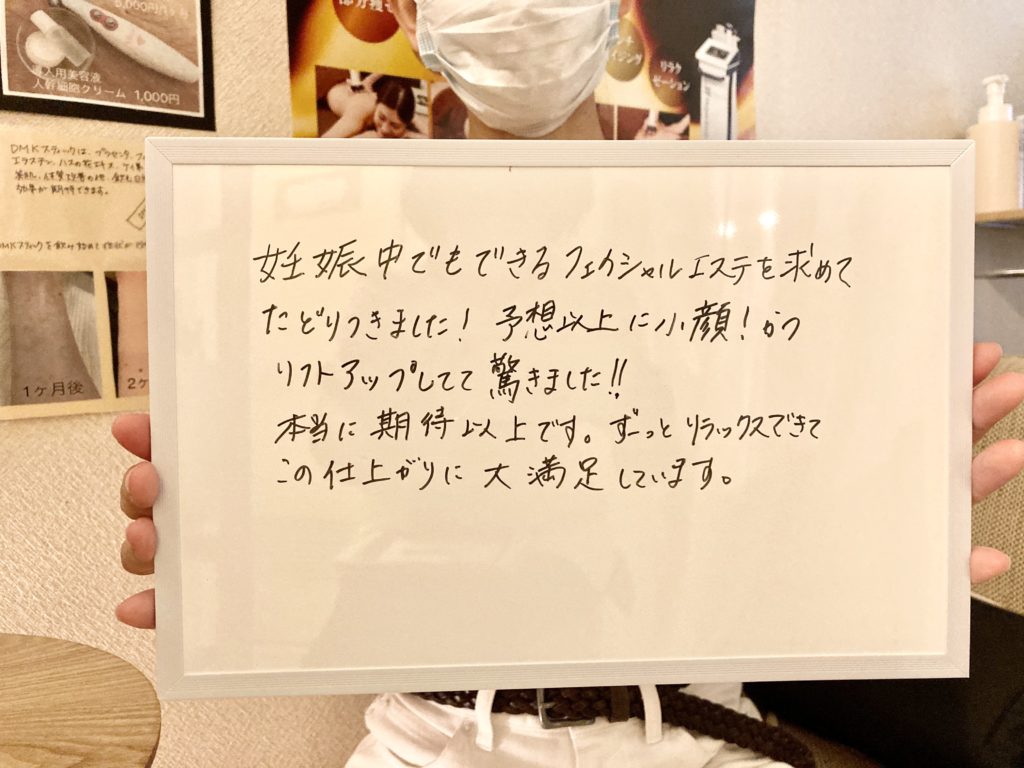 5,000円
導入用美容液
人幹細胞クリーム 1,000円
リラク
ゼーション
DMKスティックは、プラセンタ、
エラスチン、ハスの花エキス、ケイ素
効果が期待できます。
DMKスティックを飲み始めて
1ヶ月後
2ヶ
妊娠中でもできるフェイシャルエステを求めて
たどりつきました! 予想以上に小顔!かつ
リフトアップしてて驚きました!!
本当に期待以上です。ずーっとリラックスできて
この仕上がりに大満足しています。